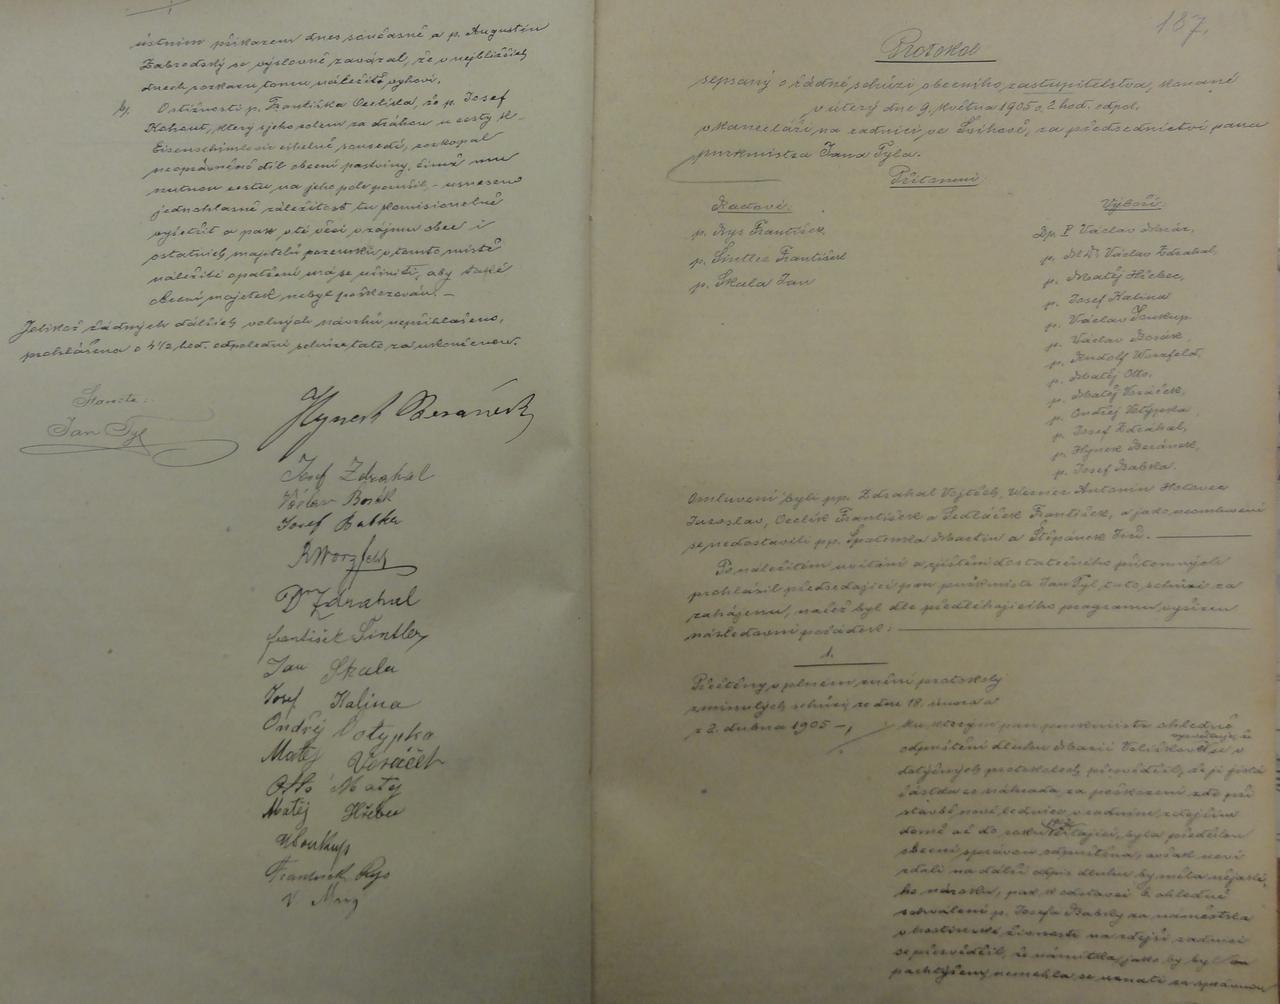 ústním příkazem dnes současně a p. Augustin
Zabrodský se výslovně zavázal, že v nejbližších
dnech rozkazu tomu náležitě vyhoví.
b). O stížnosti p. Františka Cectla, že p. Josef
Kohout, který s jeho polem za drahou u cesty k
cihelně sousedí, rozkopal
neoprávněně díl obecní pastviny, čímž mu
nutnou cestu na jeho pole porušil, - usneseno
jednohlasně záležitost tu komisionelně
vyšetřit a pak v té věci v zájmu obce i
ostatních majitelů pozemků v tomto místě
náležité opatření má se učiniti, aby také
obecní majetek nebyl poškozován. -
Jelikož žádných dalších volných návrhů nepřihlášeno,
prohlášena o 4 1/2 hod. odpolední schůze tato za ukončenou.
Starosta:
Jan Tyl
Hynek Beránek
Josef Zdrahal
Václav Bosák
Josef Babka
R Worzfeld
Dr Zdrahal
František Šintler
Jan Skala
Josef Kalina
Ondřej Votypka
Matěj Voráček
Otto Matěj
Matěj Hřebec
VSoukup
Frantisek Rys
V Mraz
187.
Protokol
sepsaný o řádné schůzi obecního zastupitelstva, konané
v úterý dne 9. května 1905 o 2 hod. odpol.
v kanceláři na radnici ve Švihově, za předsednictví pana
purkmistra Jana Tyla.
Přítomni:
Radové:
p. Rys František
p. Šintler František
p. Skala Jan
Výboři:
Dp. P. Václav Mráz,
p. MDr. Václav Zdrahal,
p. Matěj Hřebec,
p. Josef Kalina
p. Václav Soukup
p. Václav Bosák,
p. Rudolf Worzfeld,
p. Matěj Otto,
p. Matěj Voráček,
p. Ondřej Votypka,
p. Josef Zdrahal,
p. Hynek Beránek,
p. Josef Babka.
Omluveni byli pp. Zdrahal Vojtěch, Werner Antonín
Jaroslav, František a Sedláček František, a jako neomluvení
se nedostavili pp. Martin a Štěpánek
Po náležitém uvítání a zjištění dostatečného přítomných
prohlásil předsedající pan purkmistr Jan Tyl, tuto schůzi za
zahájenu, načež byl dle předléhajícího programu vyřízen
následovní pořádek:
1.
Přečteny v plném znění protokoly
z minulých schůzí ze dne 18. února a
z 2. dubna 1905 -,
ku kterým pan purkmistr ohledně
odpuštění dluhu Marii Volíškové se v
dotyčných protokolech přesvědčil, že jí jistá
částka co náhrada za poškození zdi při
stavbě nové lednice v radním zdejším
domě až do roku čítající, byla předešlou
obecní správou odpuštěna, avšak neví
zdali na další odpis dluhu by měla nějaké-
ho nároku, pak k odstavci 6 ohledně
schválení p. Josefa Babky za náměstka
v hostinské živnosti na zdejší radnici
se přesvědčil, že námitka, jako by byl
pachtýřem nemohla se uznati za správnou